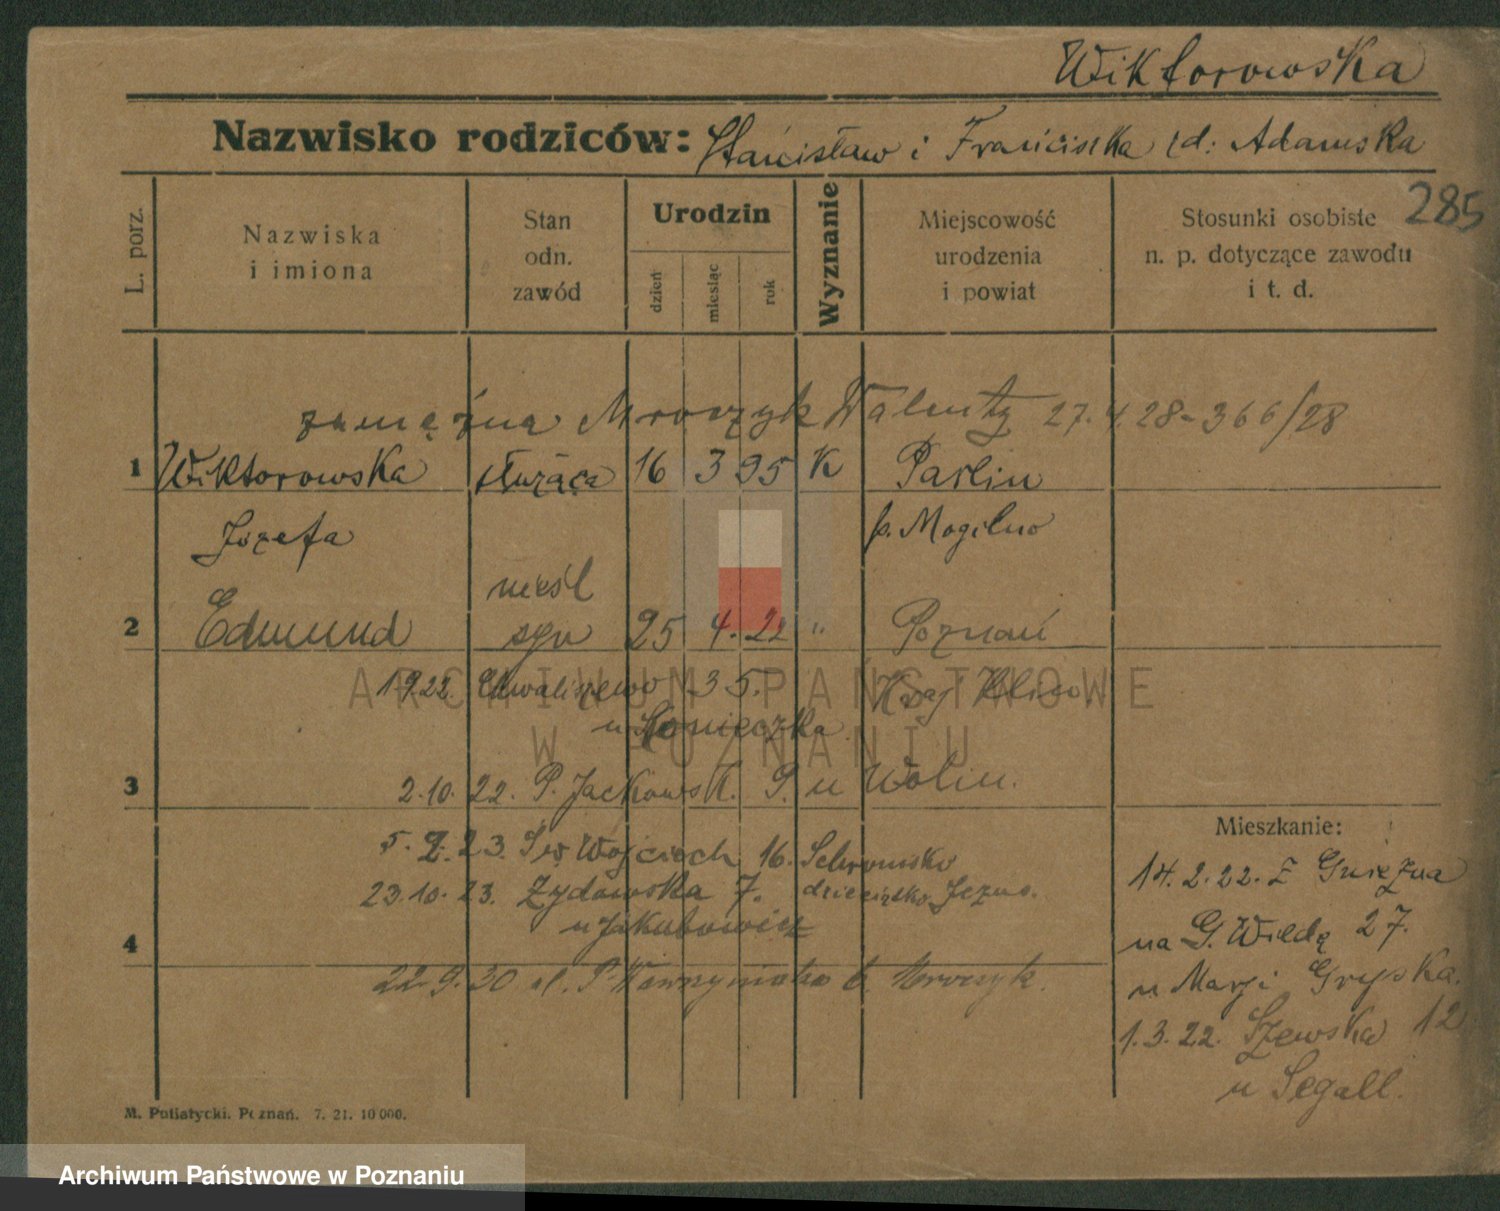 Wiktorowska
Nazwisko rodziców: Stanisław i Franciszka zd: Adamska
285
L. porz.
Nazwiska
i imiona
Stan
odn.
zawód
Urodzin
dzień
miesiąc
rok
Wyznanie
Miejscowość
urodzenia
i powiat
Stosunki osobiste
n. p. dotyczące zawodu
i t. d.
zamężna Mroczyk Walenty 27.4.28-366/28
1 Wiktorowska służąca 16 3 95 K Parlin
Józefa p. Mogilno
nieśl
2 Edmund syn 25 4. 22 " Poznań
1.9.22. Chwaliszewo 35.
u Konieczka
3 2.10.22. P. Jackowsk. 9. u Wolin.
Mieszkanie:
5.2.23. Św Wojciech 16. Schronisko
23.10.23. Żydowska 7. dzieciątko Jezus.
u Jakubowicz
4
22.9.30 ul. P. Wawrzyniaka 6. Mroczyk.
14.2.22. z Gniezna
na G. Wildą 27.
u Marji
1.3.22. Szewska 12
u Segall.
M. Putiatycki. Poznań. 7. 21. 10 000.
ARCHIWUM PAŃSTWOWE
W POZNANIU
Archiwum Państwowe w Poznaniu